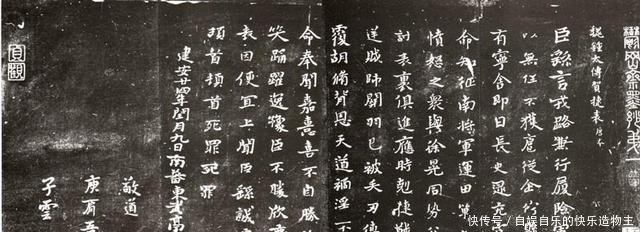 鬱岡齋墨妙第一
魏鍾太傅賀捷表唐本
臣繇言戎路兼行履險
以無任不獲扈從企佇
有寧舍即日長史逮充
命知征南將軍運田單
憤怒之眾與徐晃同勢
討表裏俱進應時剋捷
逆賊帥關羽已被矢刃傅
覆胡脩背恩天道禍淫不
命奉聞嘉憙喜不自勝
笑踊躍逸豫臣不勝欣
表因便宜上聞臣繇誠
頓首頓首死罪死罪
建安廿四年閏月九日南蕃東武
敬道
子雲
貞觀
快传号／自娱自乐的快乐造物主